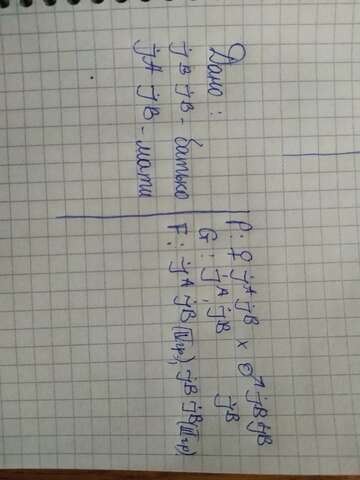 Дано:
jB jB - батько
jA jB - мати
P: ♀ jA jB x ♂ jB jB
G: jA, jB jB
F: jA jB (IV гр), jB jB (III гр)